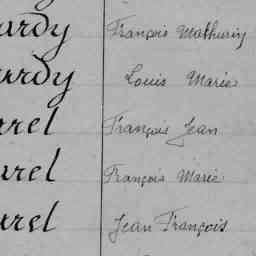 ardy François Mathurin
ardy Louis Marie
urel François Jean
urel François Marie
urel Jean François